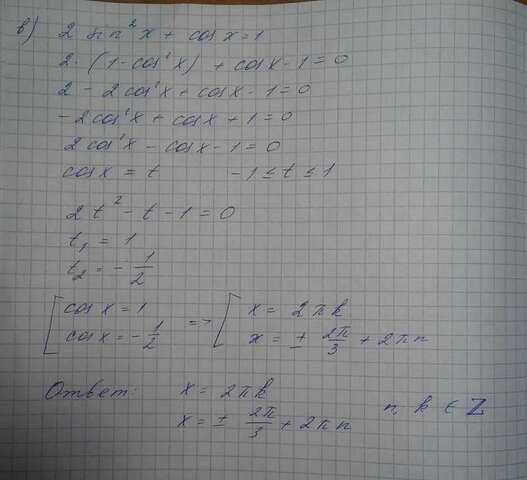 в) 2 sin²x + cos x = 1
2 · (1 - cos²x) + cos x - 1 = 0
2 - 2cos²x + cos x - 1 = 0
- 2cos²x + cos x + 1 = 0
2cos²x - cos x - 1 = 0
cos x = t      -1 ≤ t ≤ 1
2t² - t - 1 = 0
t₁ = 1
t₂ = - 1/2
[ cos x = 1 => [ x = 2πk
cos x = - 1/2      x = ± 2π/3 + 2πn
Ответ:   x = 2πk
x = ± 2π/3 + 2πn      n, k ∈ Z